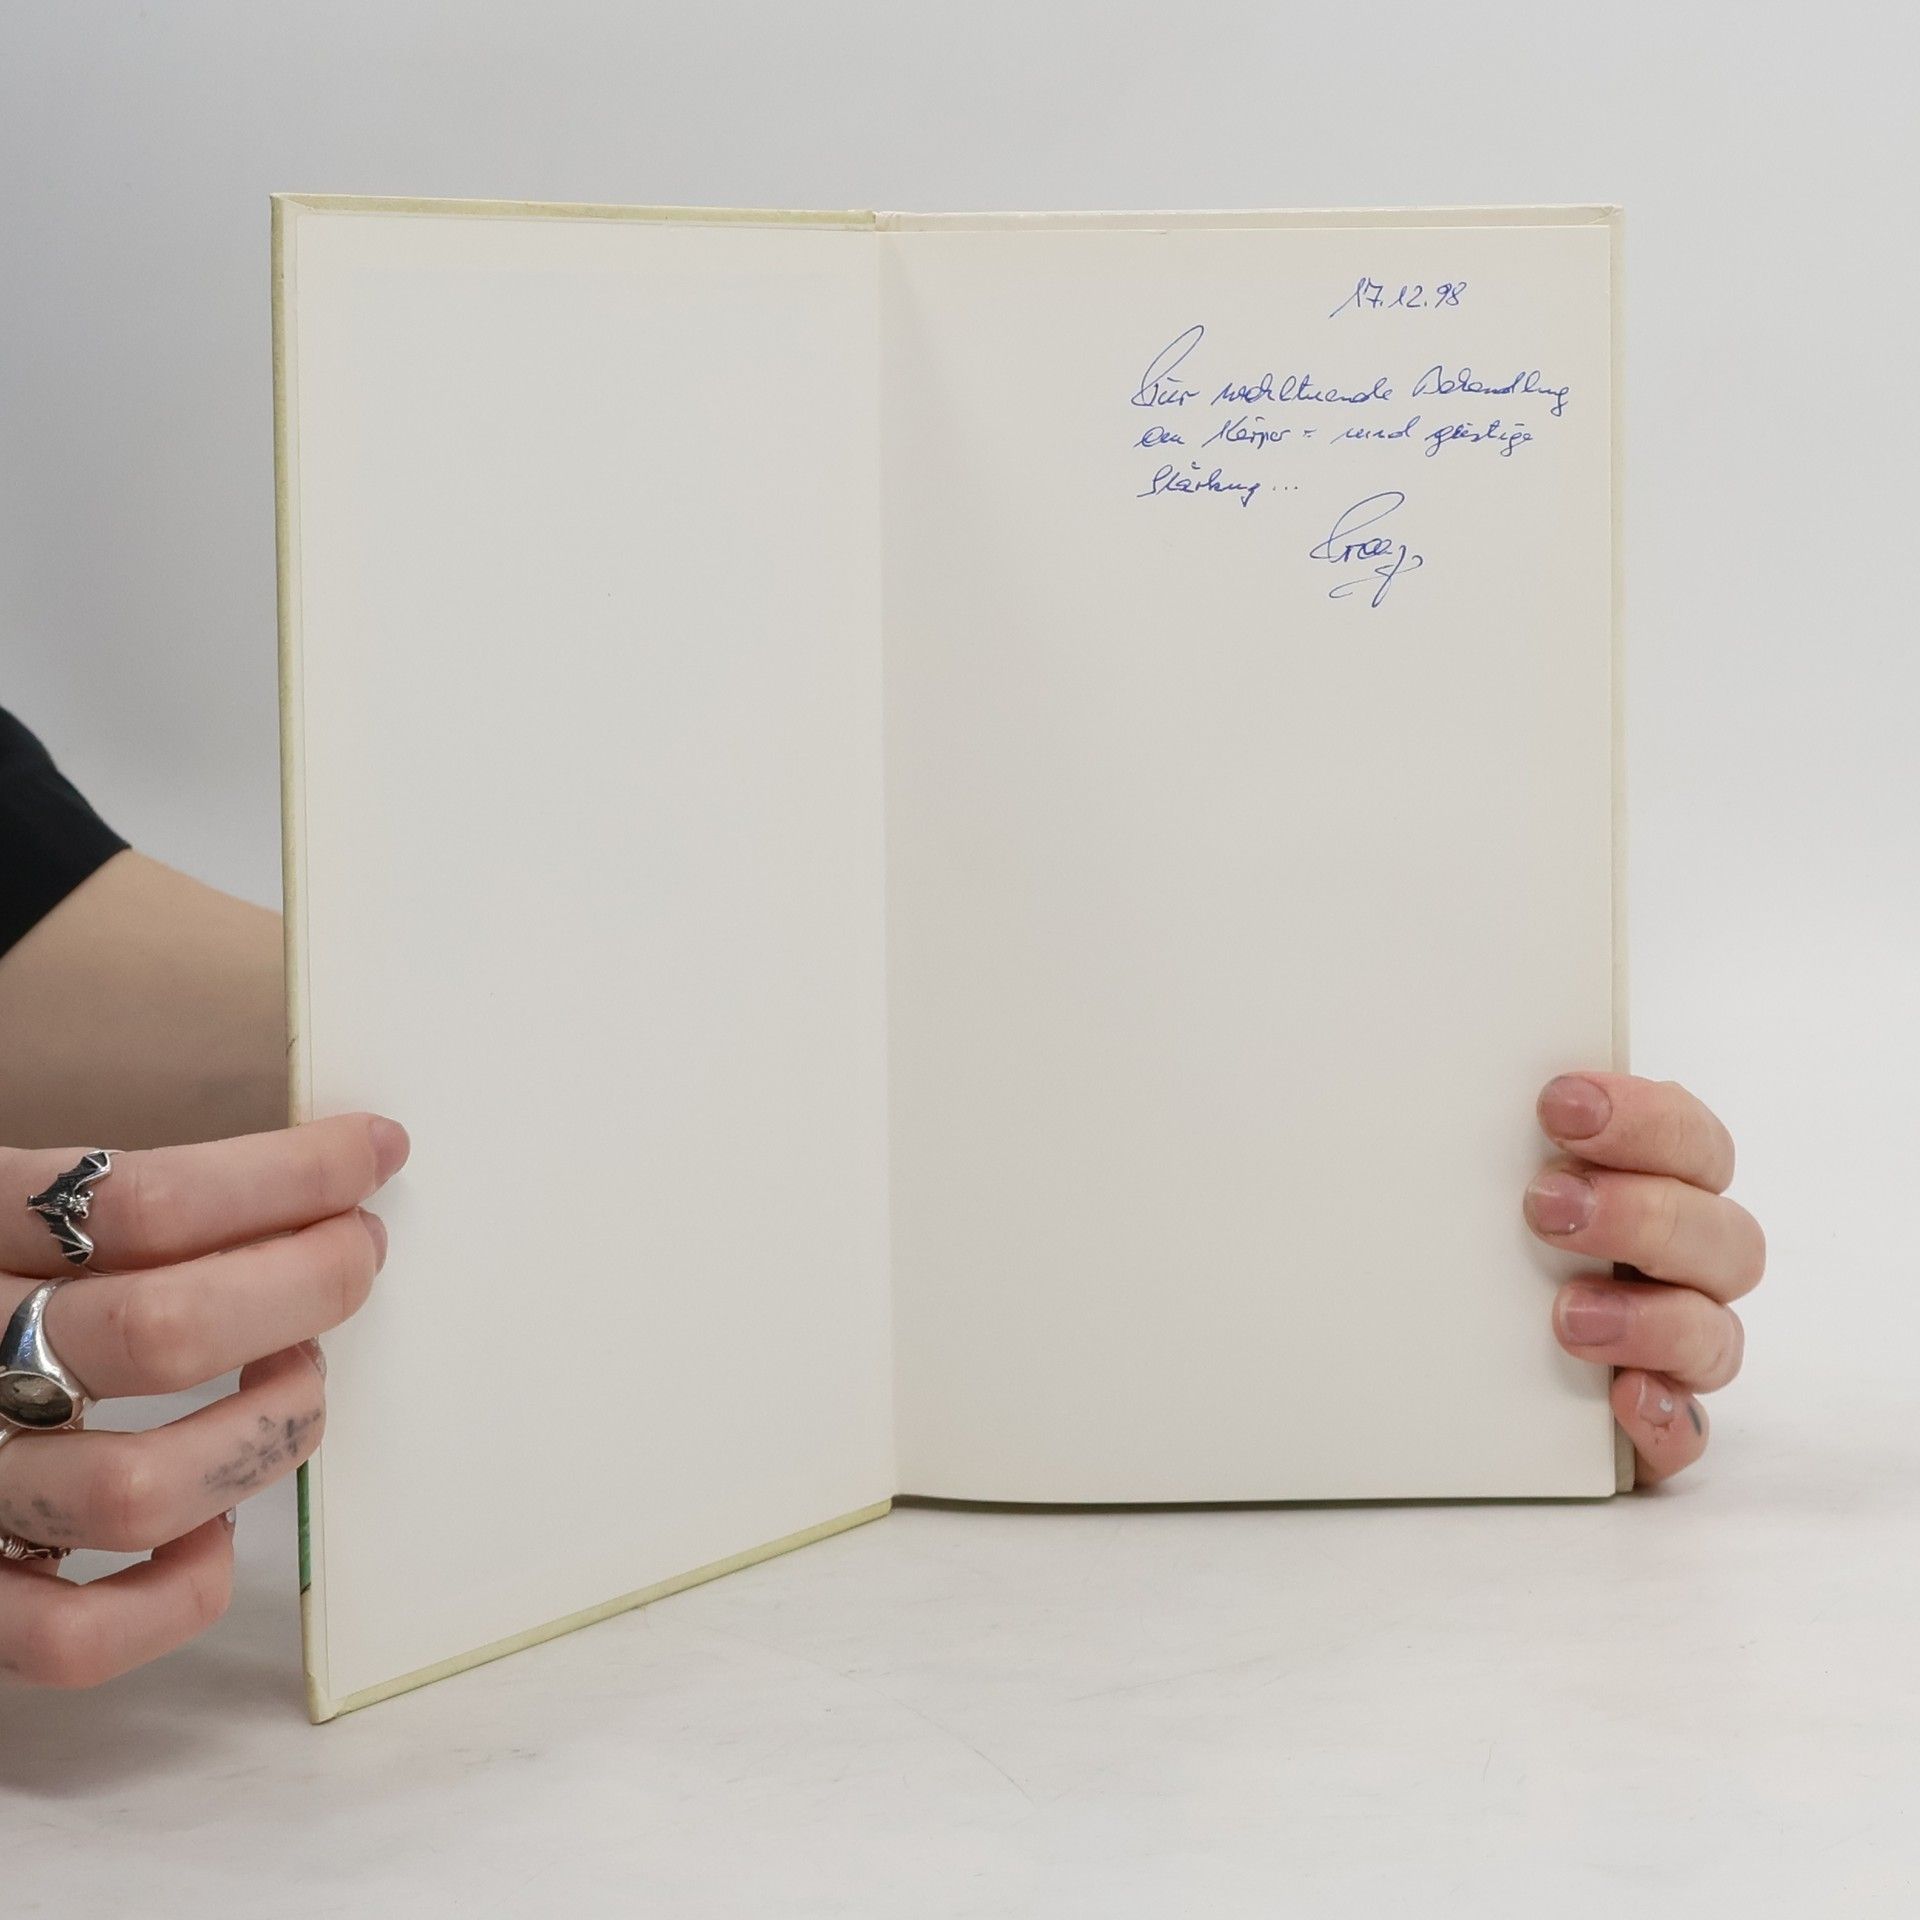 17.12.98
Für wohltuende Behandlung
am Körper - und geistige
Stärkung ...